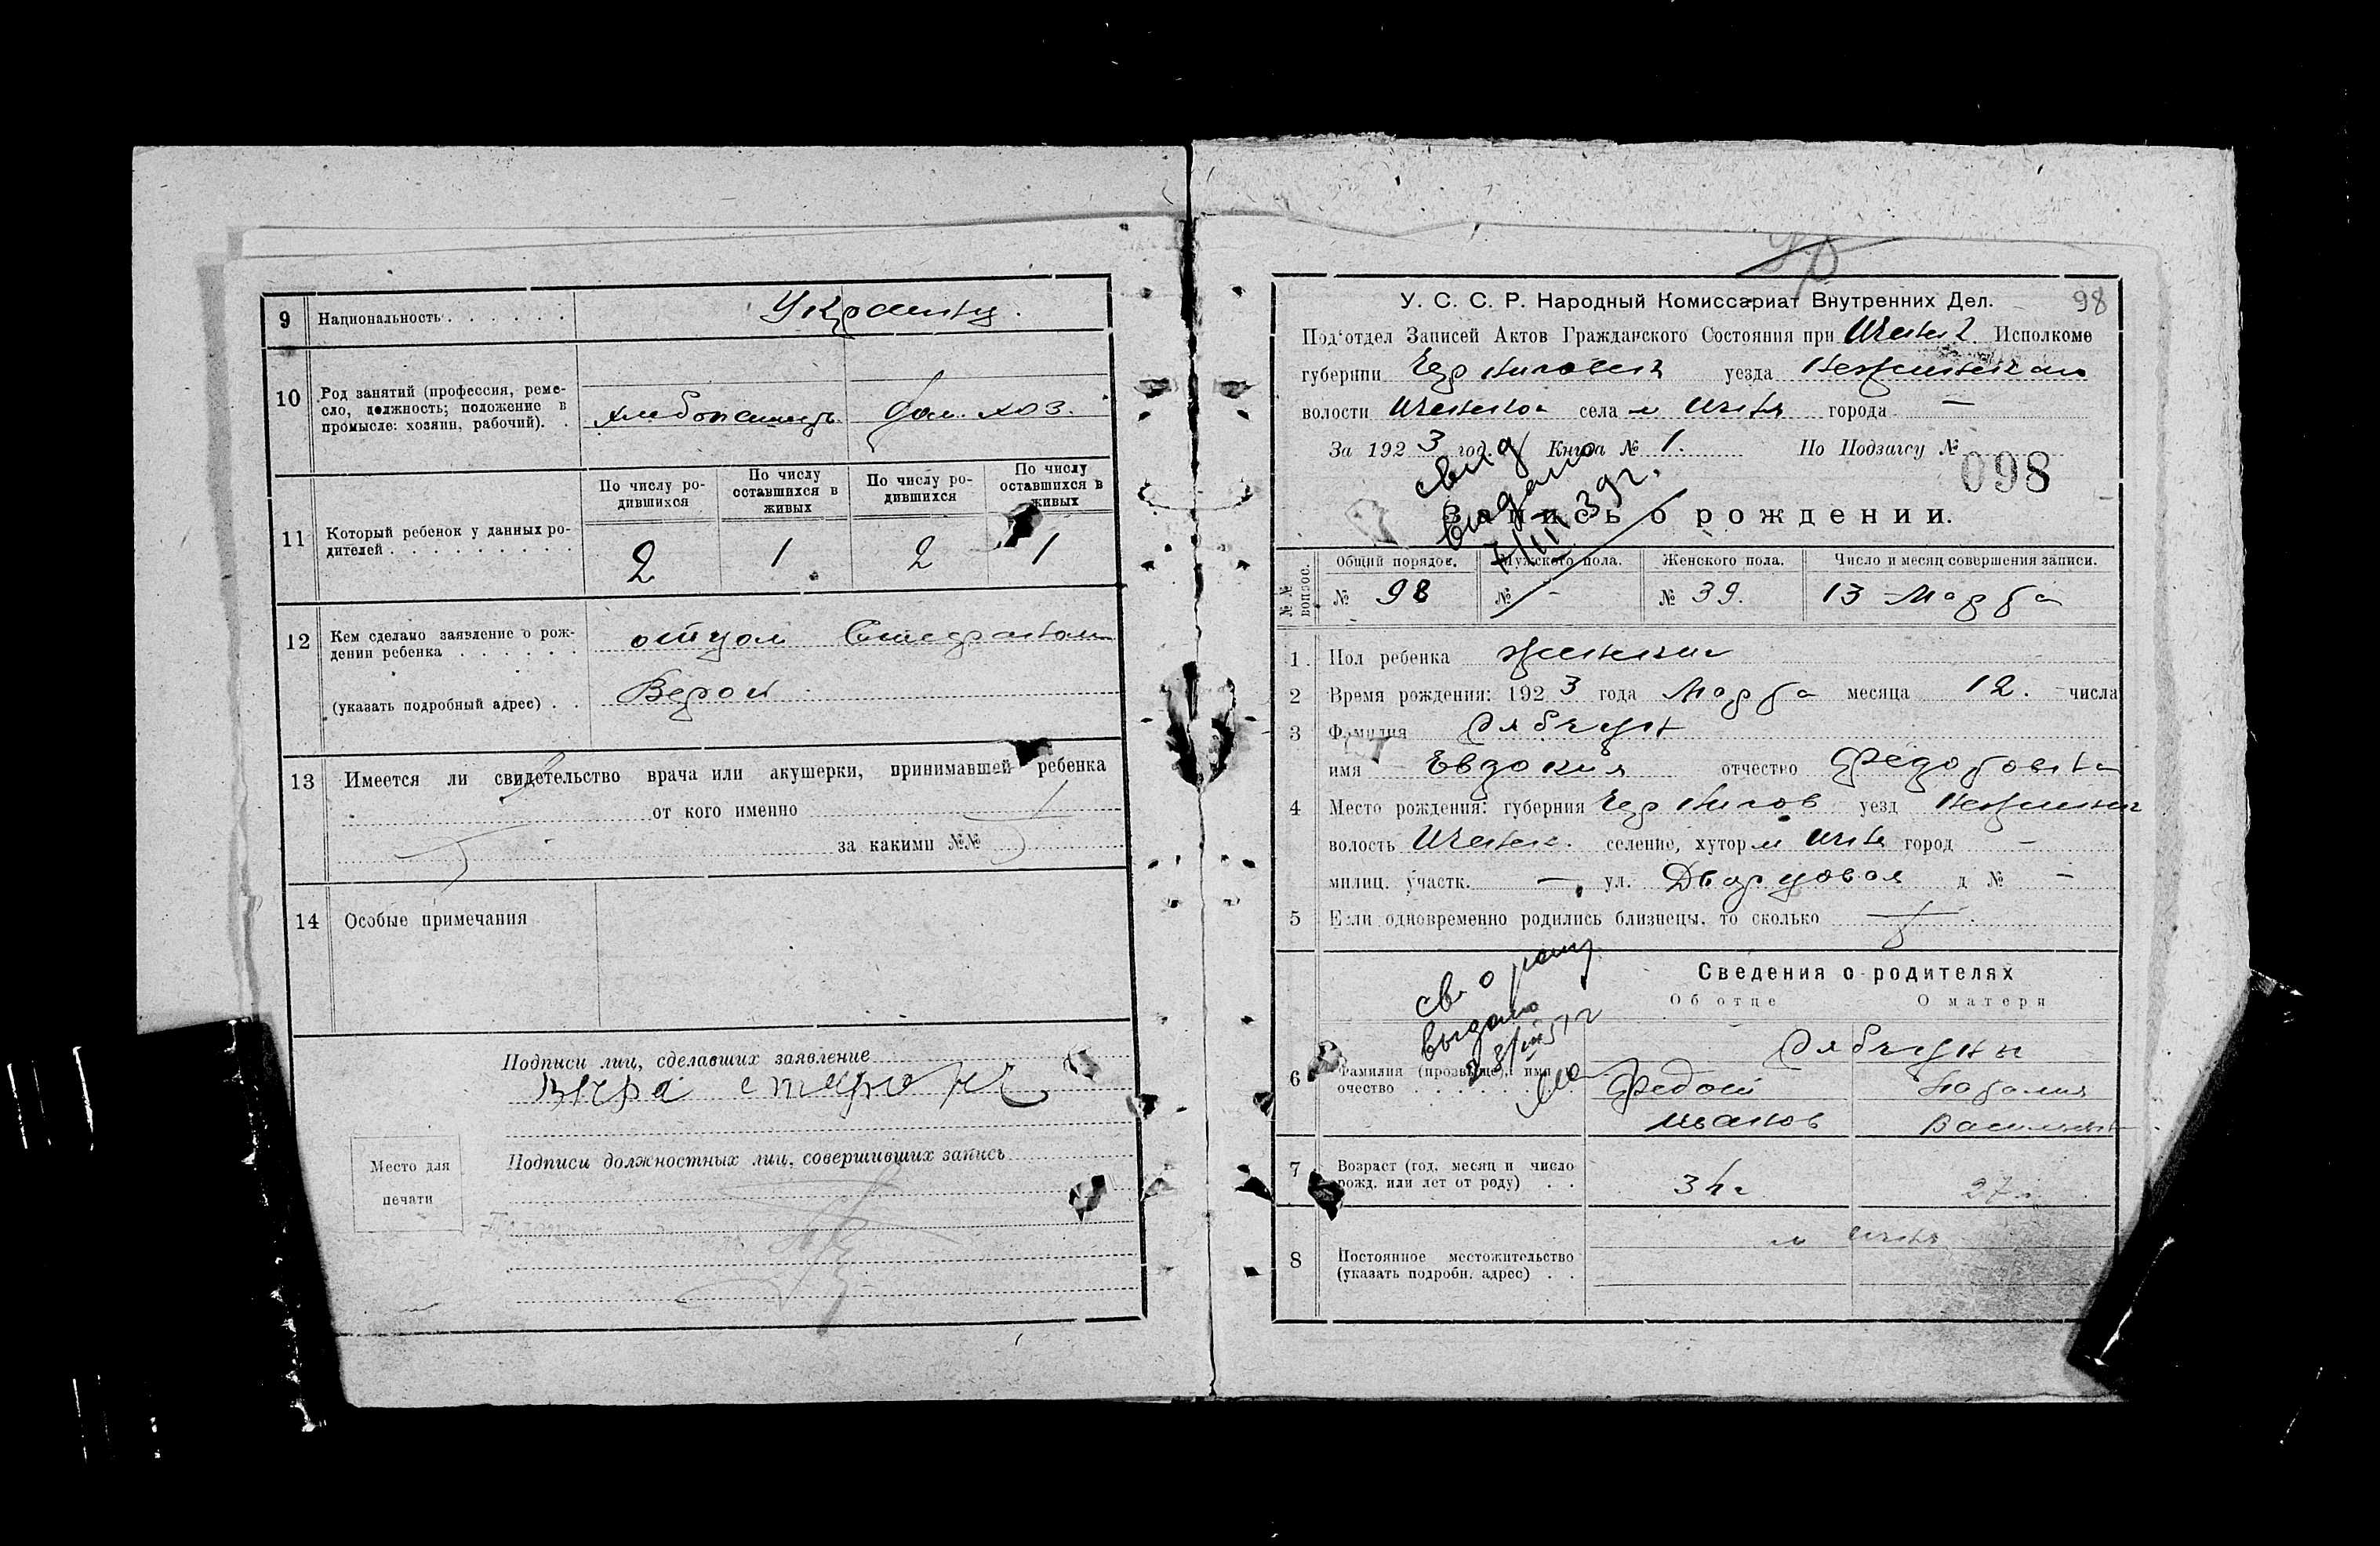 9 Национальность . . . . . . Украинцы.
10 Род занятий (профессия, реме-
сло, должность; положение в
промысле: хозяин, рабочий). . хлебопашец дом. хоз.
По числу ро-
дившихся
По числу
оставшихся в
живых
По числу ро-
дившихся
По числу
оставшихся в
живых
11 Который ребенок у данных ро-
дителей . . . . . . . . . 2 1 2 1
12 Кем сделано заявление о рож-
дении ребенка . . . . . .
(указать подробный адрес) . . Верой
13 Имеется ли свидетельство врача или акушерки, принимавшей ребенка
от кого именно
за какими №№
14 Особые примечания
Подписи лиц, сделавших заявление
Подписи должностных лиц, совершивших запись
Место для
печати
98
У. С. С. Р. Народный Комиссариат Внутренних Дел.
Под'отдел Записей Актов Гражданского Состояния при Ичен. Исполкоме
губернии Черниговск уезда Неженского
волости Иченской села м Ичня города —
За 1923 год. Книга № 1. По Подзагсу №
098
свид
выдано
Запись о рождении.
№№ вопрос.
Общий порядок. Мужского пола. Женского пола. Число и месяц совершения записи.
№ 98 № - № 39. 13 Марта
1 Пол ребенка женский
2 Время рождения: 1923 года Марта месяца 12. числа
3 Фамилия Рябчун
имя Евдокия отчество Федоровна
4 Место рождения: губерния Чернигов уезд Неженский
волость Иченск. селение, хутор м Ичня город —
милиц. участк. — ул. Дворцовая д № —
5 Если одновременно родились близнецы, то сколько
Сведения о родителях
Об отце О матери
св. о рожд
выдано
6 Фамилия (прозвище), имя
очество . . . . . . Рябчуны
Федот Наталия
Иванов Васильевн
7 Возраст (год, месяц и число
рожд. или лет от роду) . . 34 г 27 л
8 Постоянное местожительство
(указать подробн. адрес) . . м Ичня